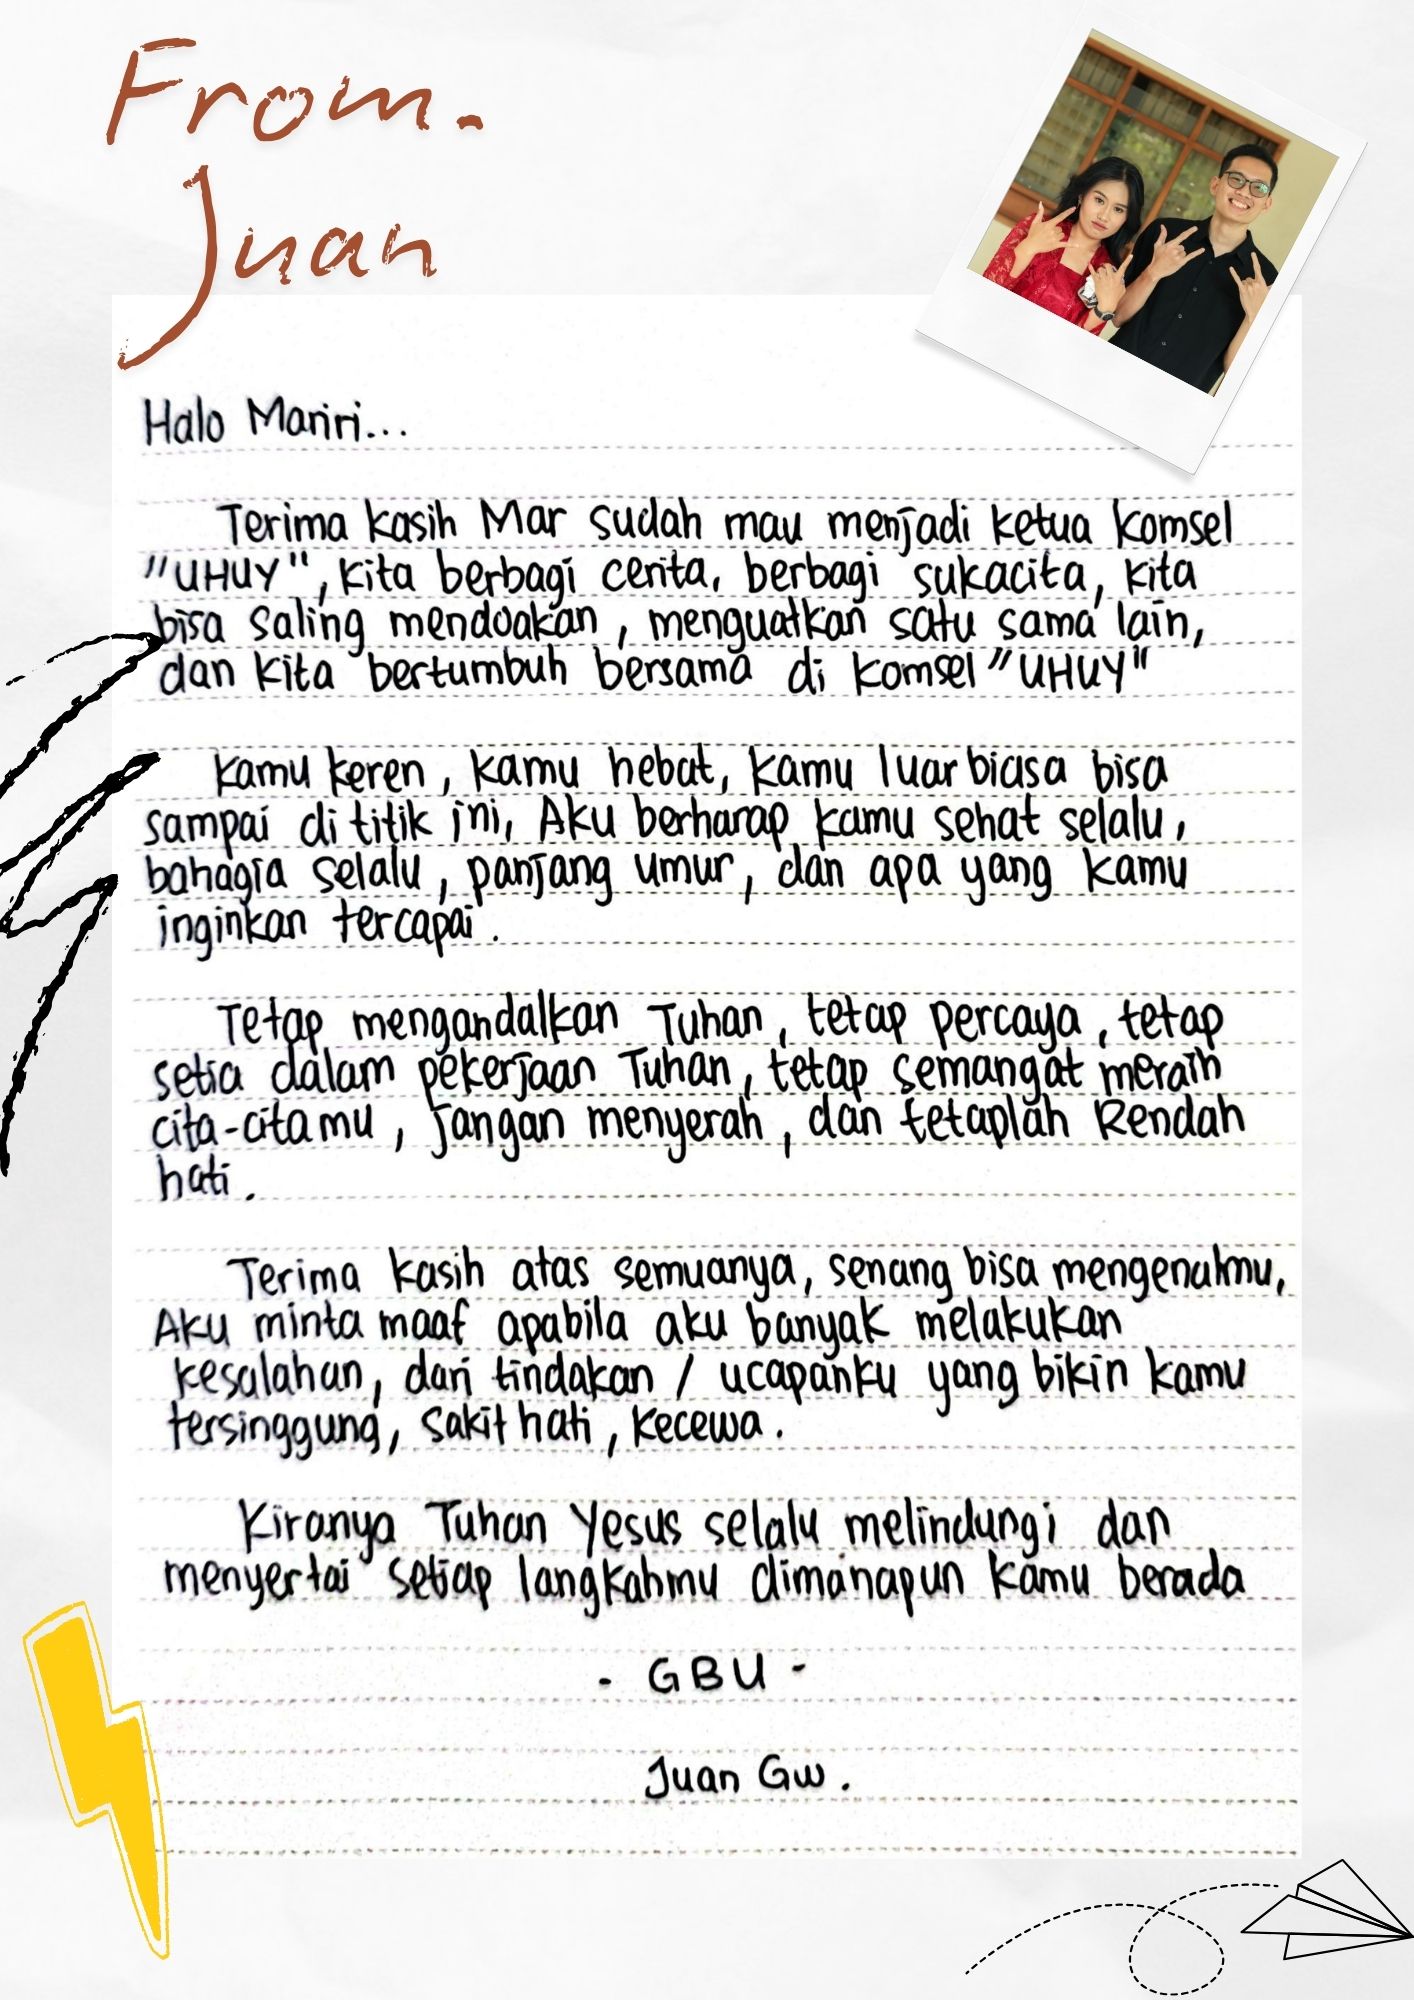 From.
Juan
Halo Mariri...
Terima kasih Mar sudah mau menjadi ketua komsel
"UHUY", kita berbagi cerita, berbagi sukacita, kita
bisa saling mendoakan, menguatkan satu sama lain,
dan kita bertumbuh bersama di komsel "UHUY"
Kamu keren, kamu hebat, kamu luar biasa bisa
sampai di titik ini, Aku berharap kamu sehat selalu,
bahagia selalu, panjang umur, dan apa yang kamu
inginkan tercapai.
Tetap mengandalkan Tuhan, tetap percaya, tetap
setia dalam pekerjaan Tuhan, tetap semangat meraih
cita-citamu, jangan menyerah, dan tetaplah Rendah
hati.
Terima kasih atas semuanya, senang bisa mengenalmu,
Aku minta maaf apabila aku banyak melakukan
kesalahan, dari tindakan / ucapanku yang bikin kamu
tersinggung, sakit hati, kecewa.
Kiranya Tuhan Yesus selalu melindungi dan
menyertai setiap langkahmu dimanapun kamu berada
- GBU -
Juan Gw.